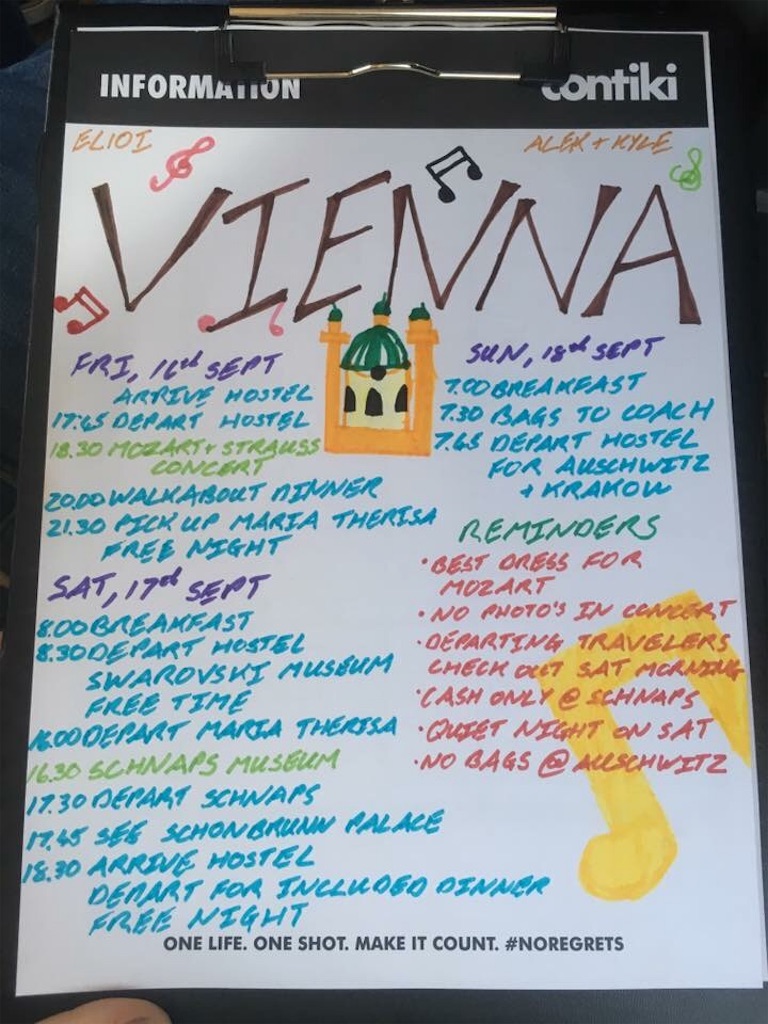 INFORMATION
contiki
ELIOT
ALEX + KYLE
VIENNA
FRI, 16th SEPT
ARRIVE HOSTEL
17.45 DEPART HOSTEL
18.30 MOZART + STRAUSS
CONCERT
20.00 WALKABOUT DINNER
21.30 PICK UP MARIA THERISA
FREE NIGHT
SAT, 17th SEPT
8.00 BREAKFAST
8.30 DEPART HOSTEL
SWAROVSKI MUSEUM
FREE TIME
16.00 DEPART MARIA THERISA
16.30 SCHNAPS MUSEUM
17.30 DEPART SCHNAPS
17.45 SEE SCHONBRUNN PALACE
18.30 ARRIVE HOSTEL
DEPART FOR INCLUDED DINNER
FREE NIGHT
SUN, 18th SEPT
7.00 BREAKFAST
7.30 BAGS TO COACH
7.45 DEPART HOSTEL
FOR AUSCHWITZ
+ KRAKOW
REMINDERS
• BEST DRESS FOR
MOZART
• NO PHOTO'S IN CONCERT
• DEPARTING TRAVELERS
CHECK OUT SAT MORNING
• CASH ONLY @ SCHNAPS
• QUIET NIGHT ON SAT
• NO BAGS @ AUSCHWITZ
ONE LIFE. ONE SHOT. MAKE IT COUNT. #NOREGRETS